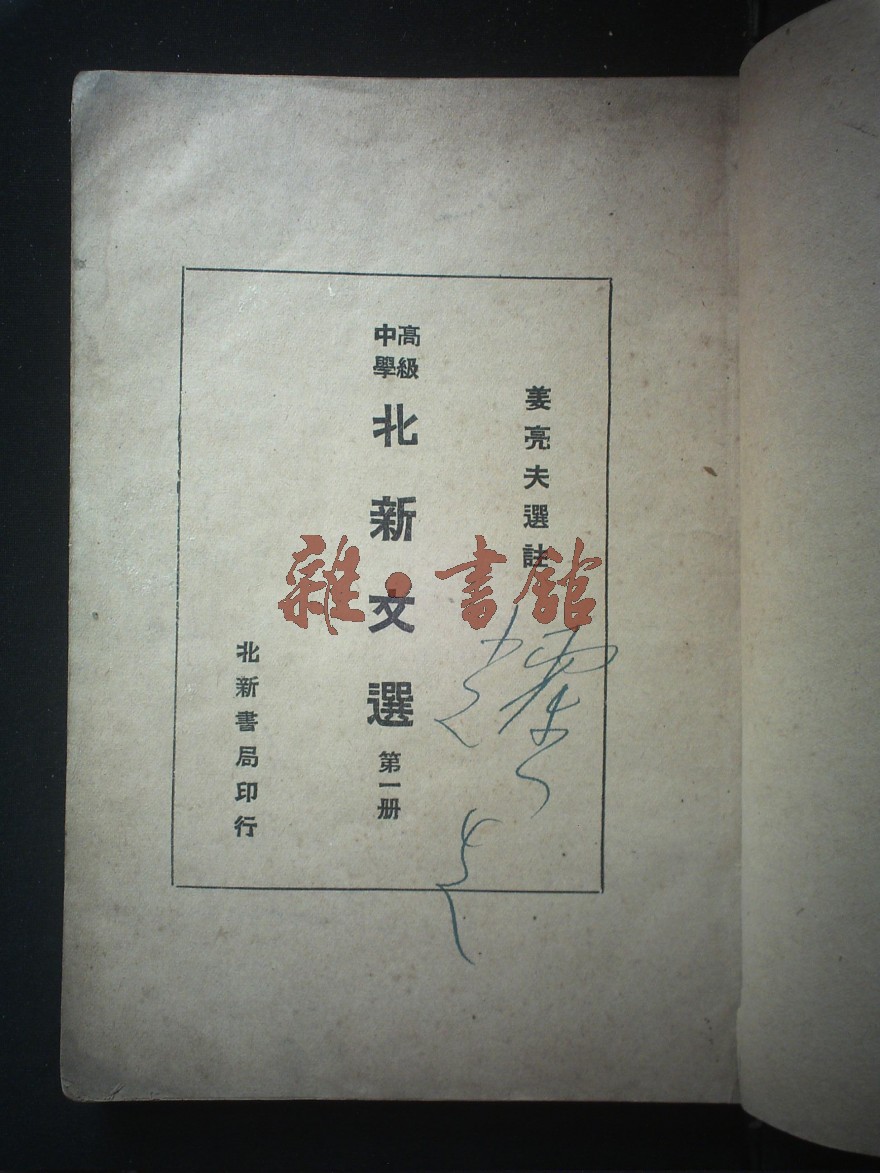 姜亮夫選註
高級中學
北新文選 第一册
北新書局印行
雜·書館